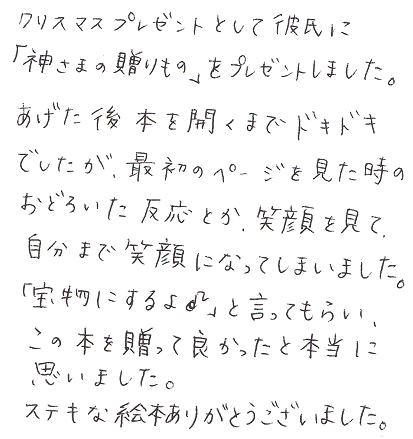 クリスマスプレゼントとして彼氏に
「神さまの贈りもの」をプレゼントしました。
あげた後本を開くまでドキドキ
でしたが、最初のページを見た時の
おどろいた反応とか、笑顔を見て、
自分まで笑顔になってしまいました。
「宝物にするよ」と言ってもらい、
この本を贈って良かったと本当に
思いました。
ステキな絵本ありがとうございました。